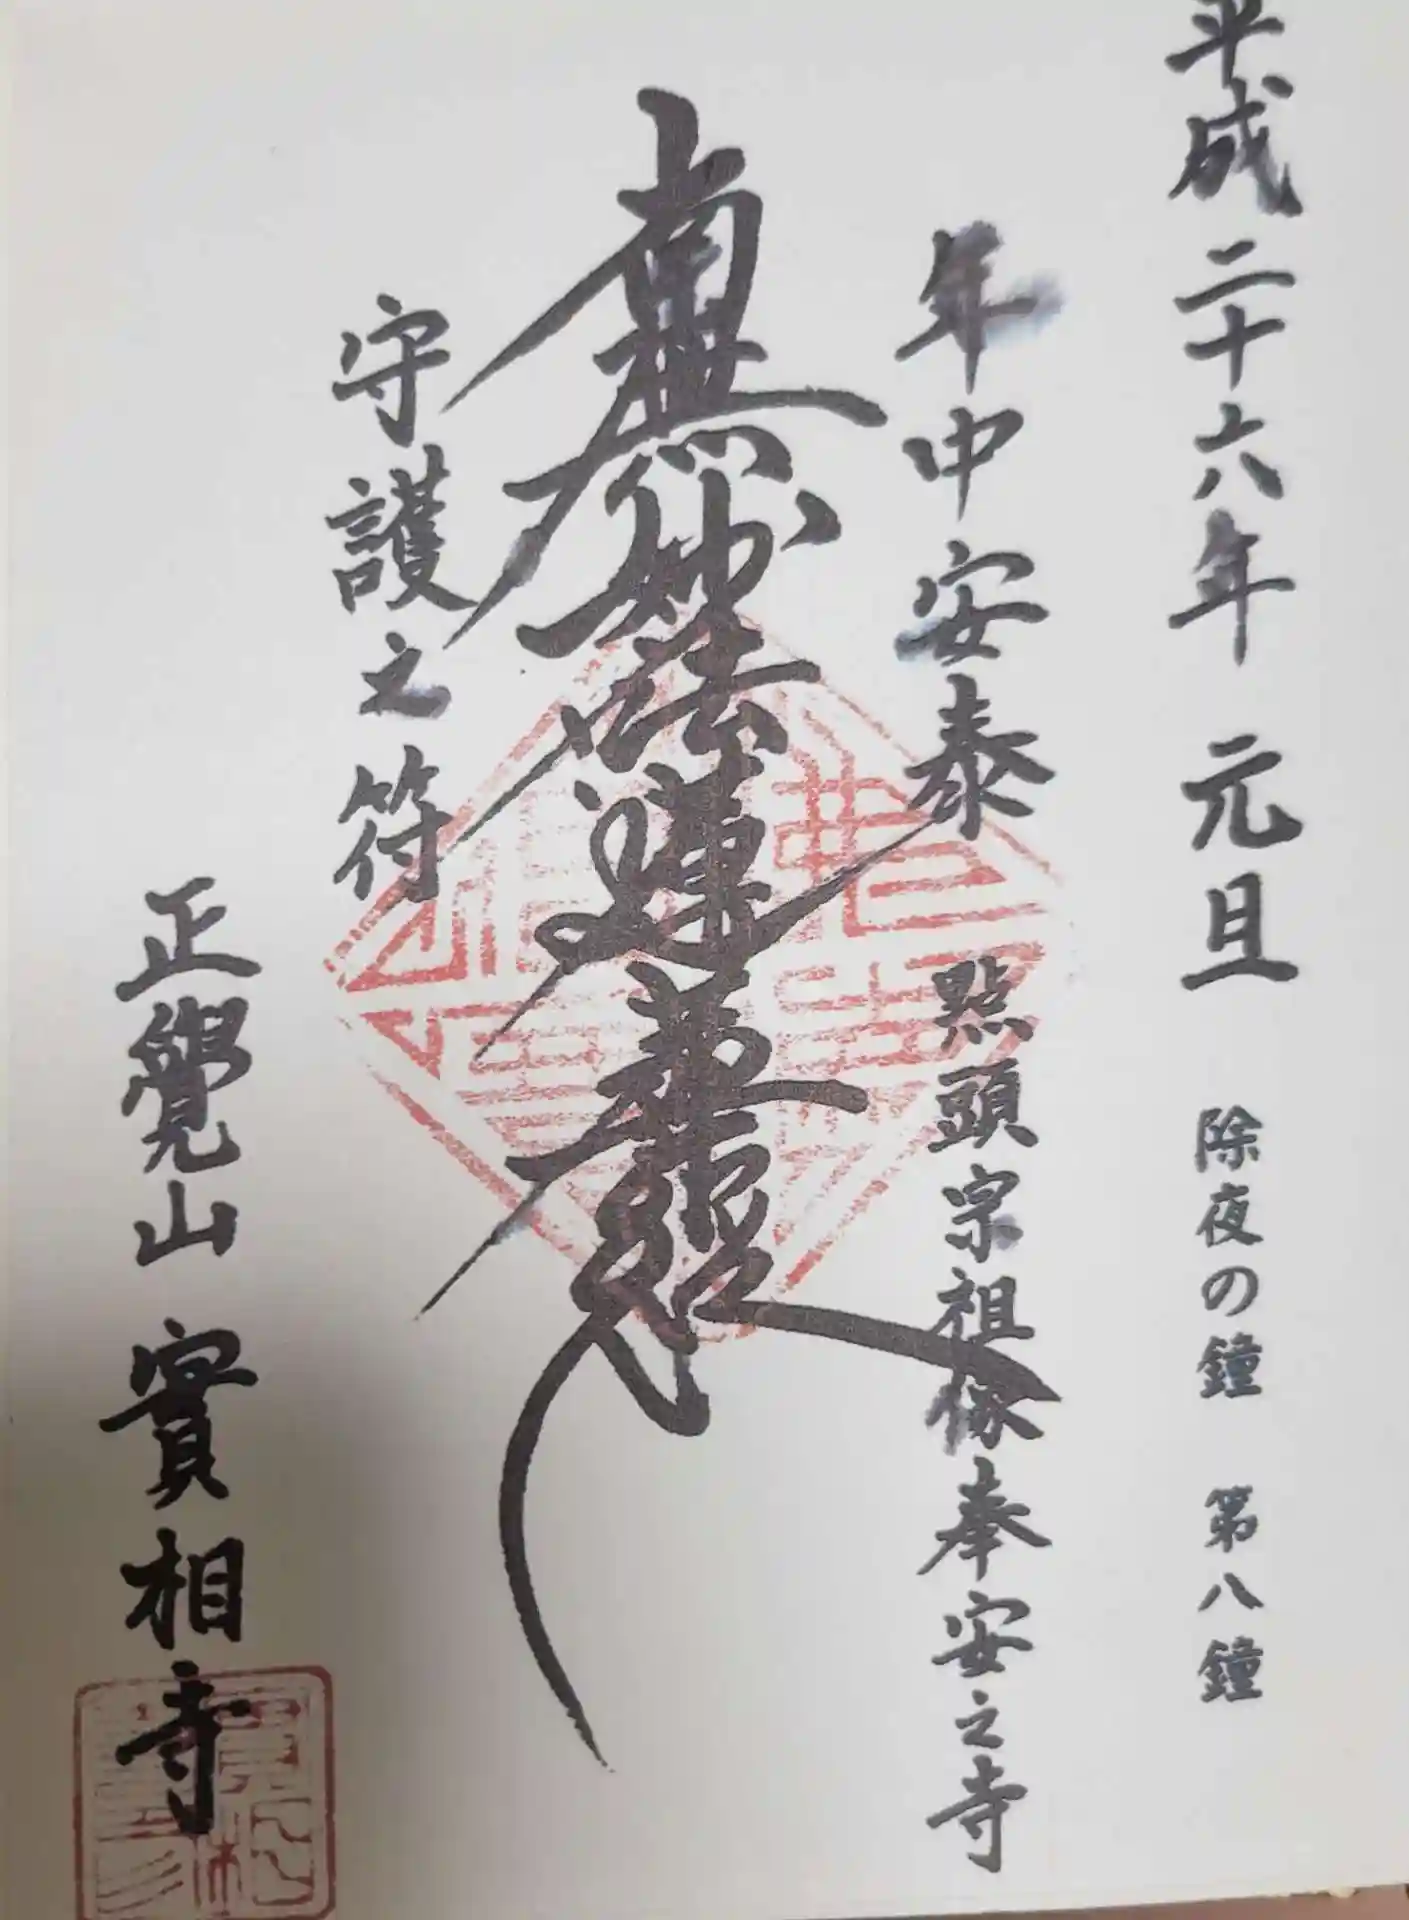 平成二十六年 元旦 除夜の鐘 第八鐘
年中安泰 點頭宗祖像奉安之寺
南無妙法蓮華經
守護之符
正覺山 實相寺